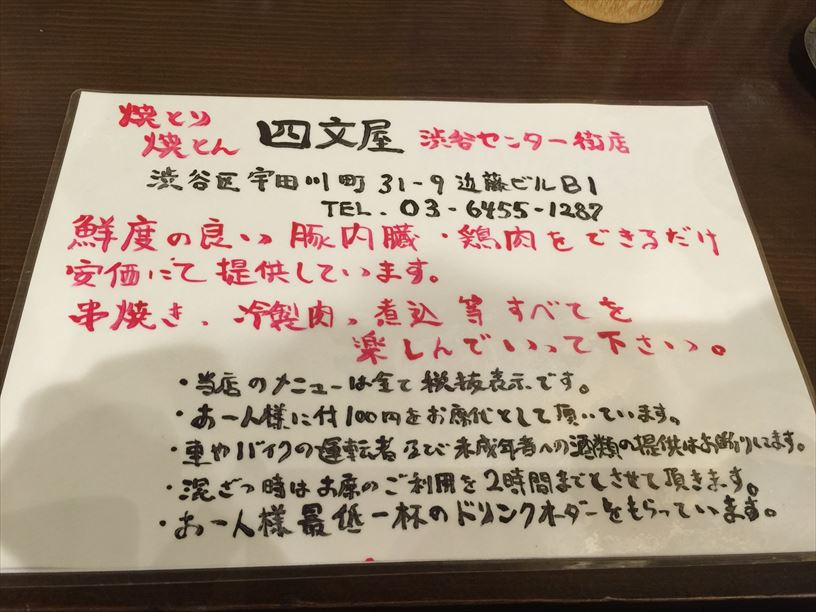 焼とり
焼とん 四文屋 渋谷センター街店
渋谷区宇田川町31-9近藤ビルB1
TEL. 03-6455-1287
鮮度の良い豚内臓・鶏肉をできるだけ
安価にて提供しています。
串焼き、冷製肉、煮込等すべてを
楽しんでいって下さい。
・当店のメニューは全て税抜表示です。
・お一人様に付100円をお席代として頂いています。
・車やバイクの運転者及び未成年者への酒類の提供はお断りしてます。
・混ざつ時はお席のご利用を2時間までとさせて頂きます。
・お一人様最低一杯のドリンクオーダーをもらっています。